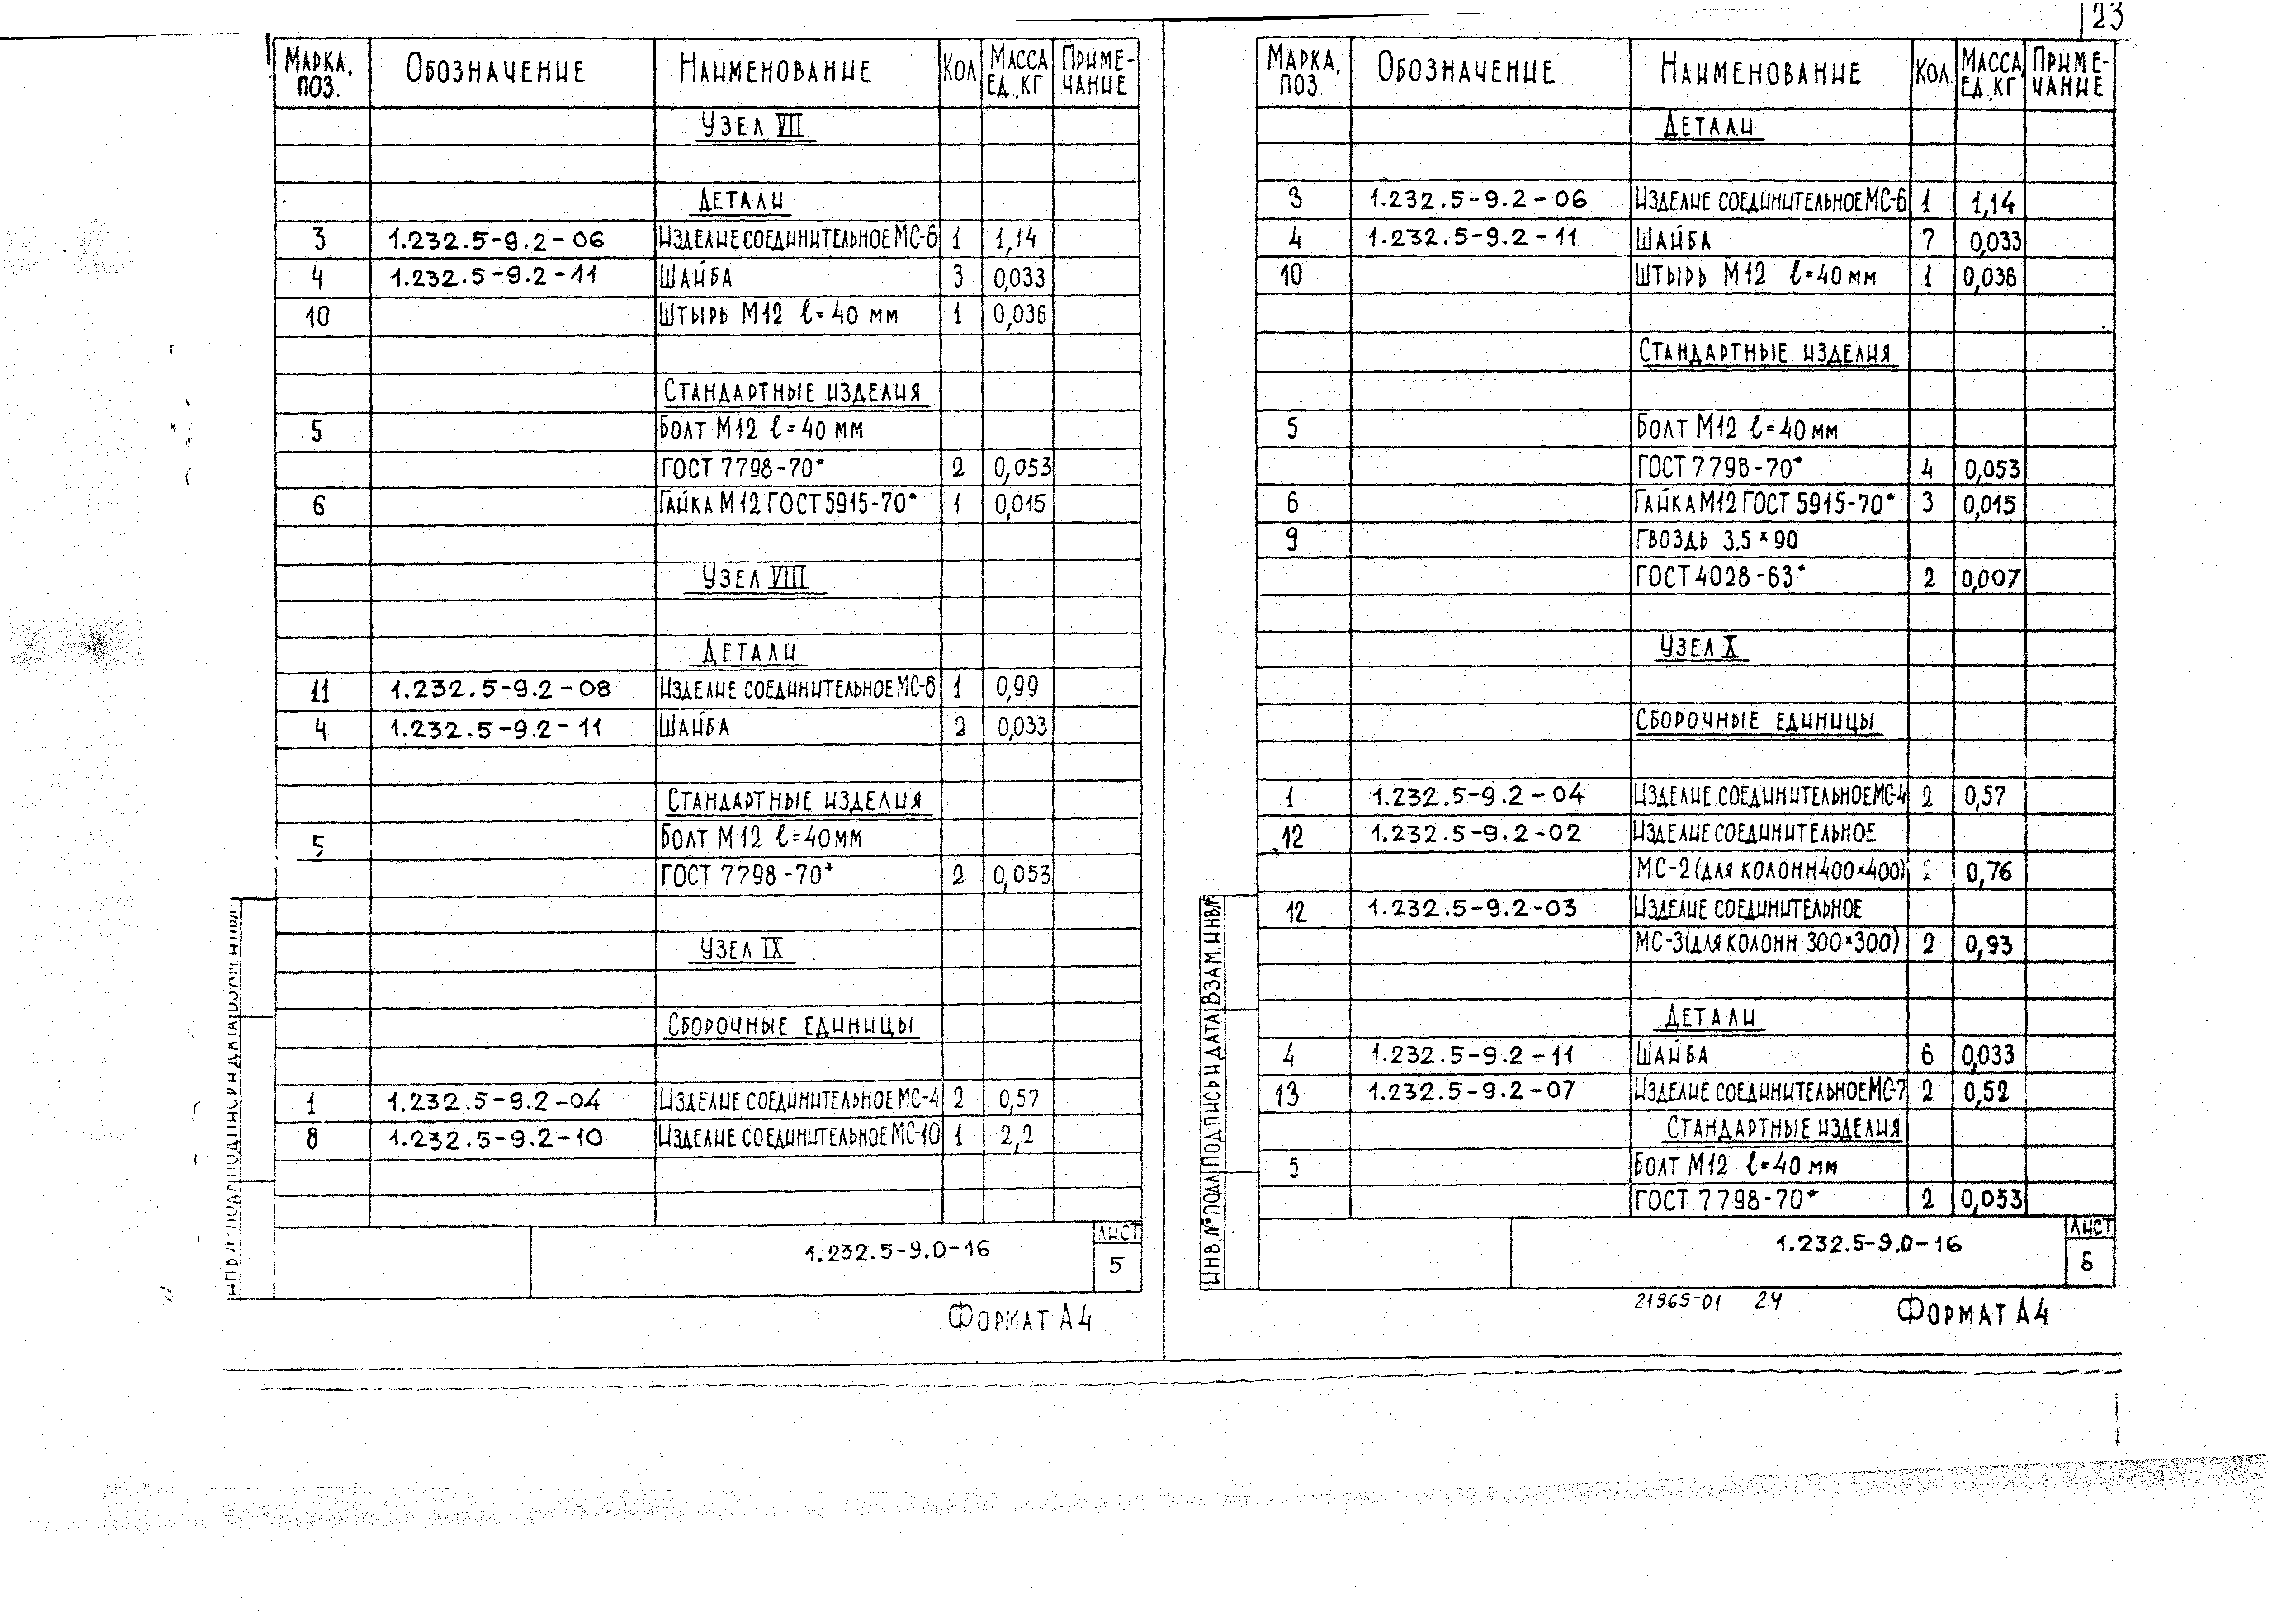 23
Марка, поз. Обозначение Наименование Кол. Масса ед., кг Приме- чание
Узел VII
Детали
3 1.232.5-9.2-06 Изделие соединительное МС-6 1 1,14
4 1.232.5-9.2-11 Шайба 3 0,033
10 Штырь М12 ℓ=40 мм 1 0,036
Стандартные изделия
5 Болт М12 ℓ=40 мм
ГОСТ 7798-70* 2 0,053
6 Гайка М12 ГОСТ 5915-70* 1 0,015
Узел VIII
Детали
11 1.232.5-9.2-08 Изделие соединительное МС-8 1 0,99
4 1.232.5-9.2-11 Шайба 2 0,033
Стандартные изделия
5 Болт М12 ℓ=40мм
ГОСТ 7798-70* 2 0,053
Узел IX
Сборочные единицы
1 1.232.5-9.2-04 Изделие соединительное МС-4 2 0,57
8 1.232.5-9.2-10 Изделие соединительное МС-10 1 2,2
1.232.5-9.0-16
Лист
5
Формат А4
Марка, поз. Обозначение Наименование Кол. Масса ед., кг Приме- чание
Детали
3 1.232.5-9.2-06 Изделие соединительное МС-6 1 1,14
4 1.232.5-9.2-11 Шайба 7 0,033
10 Штырь М12 ℓ=40мм 1 0,036
Стандартные изделия
5 Болт М12 ℓ=40мм
ГОСТ 7798-70* 4 0,053
6 Гайка М12 ГОСТ 5915-70* 3 0,015
9 Гвоздь 3.5×90
ГОСТ 4028-63* 2 0,007
Узел X
Сборочные единицы
1 1.232.5-9.2-04 Изделие соединительное МС-4 2 0,57
12 1.232.5-9.2-02 Изделие соединительное
МС-2 (для колонн 400×400) 0,76
12 1.232.5-9.2-03 Изделие соединительное
МС-3 (для колонн 300×300) 2 0,93
Детали
4 1.232.5-9.2-11 Шайба 6 0,033
13 1.232.5-9.2-07 Изделие соединительное МС-7 2 0,52
Стандартные изделия
5 Болт М12 ℓ=40 мм
ГОСТ 7798-70* 2 0,053
Инв.№ подл. Подпись и дата Взам.инв.№
1.232.5-9.0-16
Лист
6
21965-01 24
Формат А4